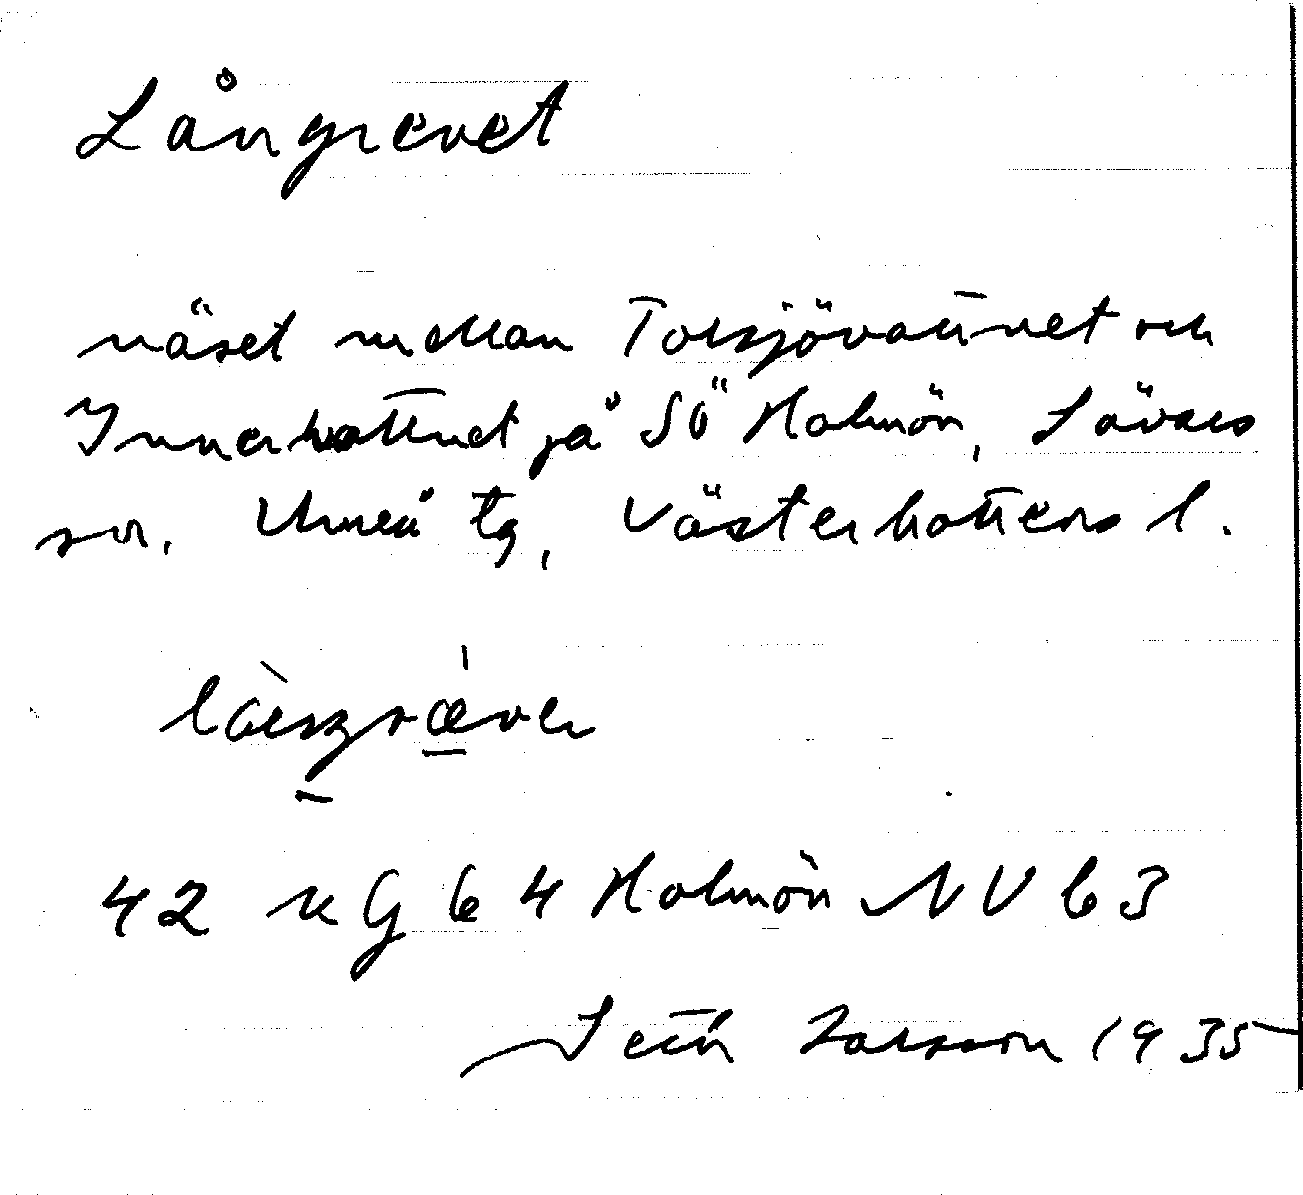 Långrevet
näset mellan Torsjövattnet och
Innerhattnet på SÖ Holmön, Lövsels
sn, Umeå tg, Västerbottens l.
42 u G 64 Holmön NV 63
Seth Larsson 1935